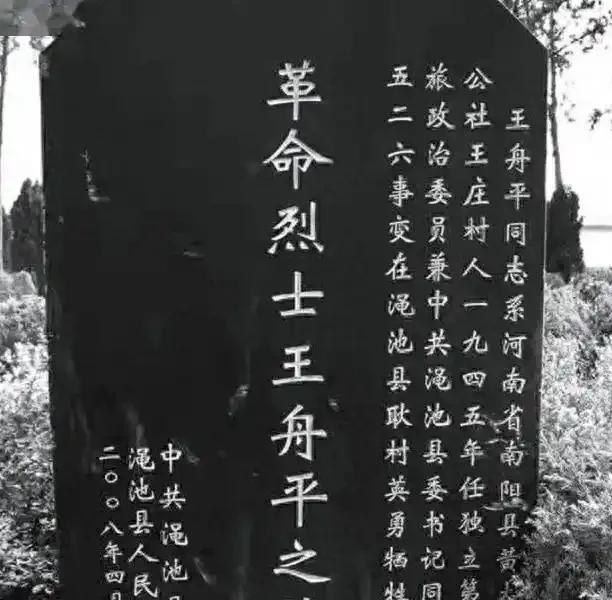 王舟平同志系河南省南阳县黄
公社王庄村人一九四五年任独立第
旅政治委员兼中共渑池县委书记同
五二六事变在渑池县耿村英勇牺牲
革命烈士王舟平之
中共渑池县
渑池县人民
二〇〇八年四月